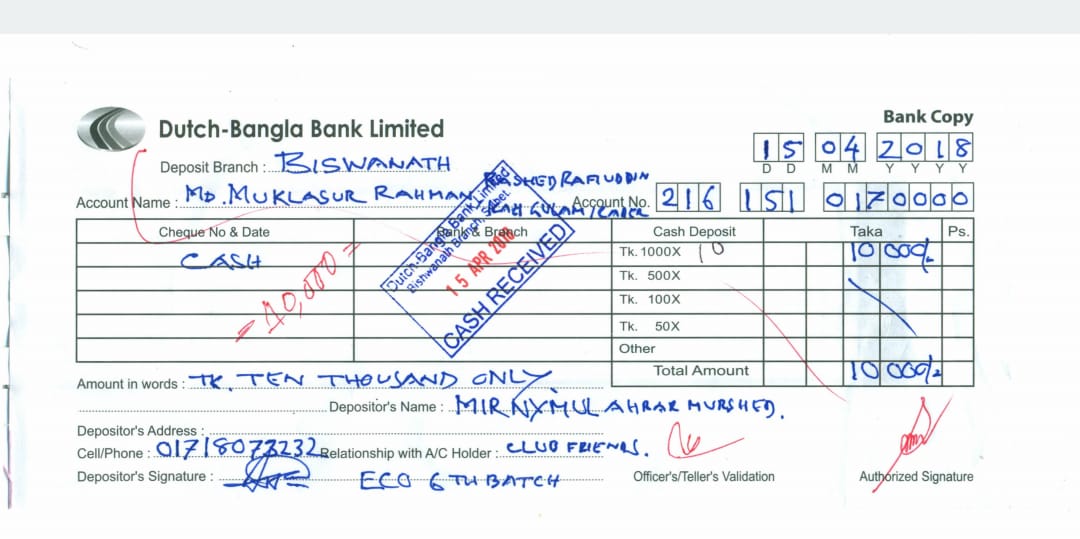 Bank Copy
Dutch-Bangla Bank Limited
15 04 2018
D D M M Y Y Y Y
Deposit Branch : BISWANATH
Account Name : MD. MUKLASUR RAHMAN, RASHED RAFIUDDIN
SHAH GULAM
Account No. 216 151 0170000
Cheque No & Date Bank & Branch Cash Deposit Taka Ps.
CASH Tk. 1000X 10 10 000/-
Tk. 500X
Tk. 100X
Tk. 50X
Other
Total Amount 10 000/-
= 10,000 =
Dutch-Bangla Bank Limited
Bishwanath Branch, Sylhet
15 APR 2018
CASH RECEIVED
Amount in words : TK. TEN THOUSAND ONLY.
Depositor's Name : MIR NYMUL AHRAR MURSHED.
Depositor's Address :
Cell/Phone : 01718073232 Relationship with A/C Holder : CLUB FRIENDS.
Depositor's Signature : ECO 6TH BATCH Officer's/Teller's Validation Authorized Signature